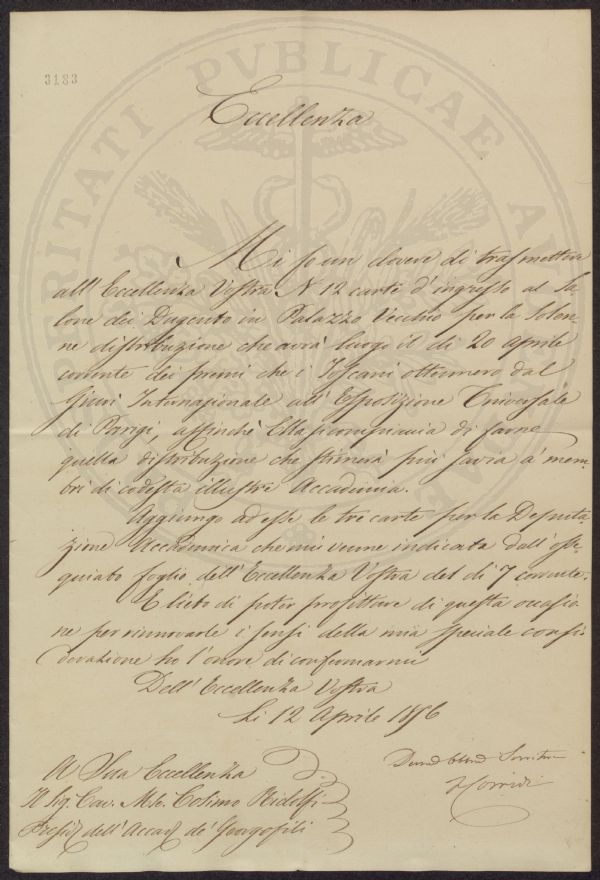 3183
PROSPERITATI PVBLICAE AVGENDAE
Eccellenza
Mi fo un dovere di trasmettere
all'Eccellenza Vostra N. 12 carte d'ingresso al Sa-
lone dei Dugento in Palazzo Vecchio per la Solen-
ne distribuzione che avrà luogo il di 20 aprile
corrente dei premi che i Toscani ottennero dal
Giurì Internazionale all'Esposizione Universale
di Parigi, affinchè Ella si compiaccia di farne
quella distribuzione che stimerà più savia a' mem-
bri di codesta illustre Accademia.
Aggiungo ad esse le tre carte per la Deputa-
zione Accademica che mi venne indicata dall'osse-
quiato foglio dell'Eccellenza Vostra del di 7 corrente.
E lieto di poter profittare di questa occasio-
ne per rinnovarle i sensi della mia speciale consi-
derazione ho l'onore di confermarmi
Dell'Eccellenza Vostra
Li 12 Aprile 1856
Corridi
A Sua Eccellenza
Il Sig. Cav. Mse. Cosimo Ridolfi
Presid. dell'Accad. de' Georgofili